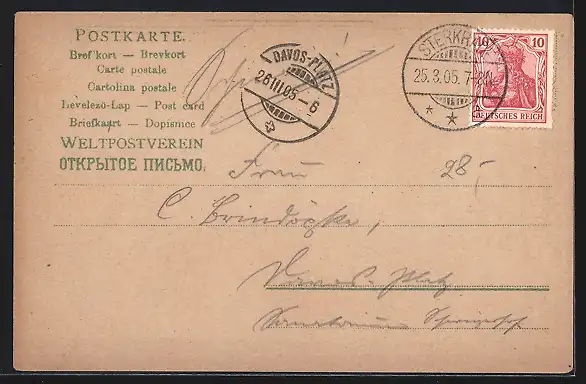 POSTKARTE.
Bref kort — Brevkort
Carte postale
Cartolina postale
Levelező-Lap — Post card
Briefkaart — Dopisnice
WELTPOSTVEREIN
ОТКРЫТОЕ ПИСЬМО.
DAVOS-PLATZ
26 III 05 – 6
STERKRADE
25.3.05. 7-8N.
10 10
DEUTSCHES REICH
Frau 28,-
C.
Davos-Platz
Sanatorium